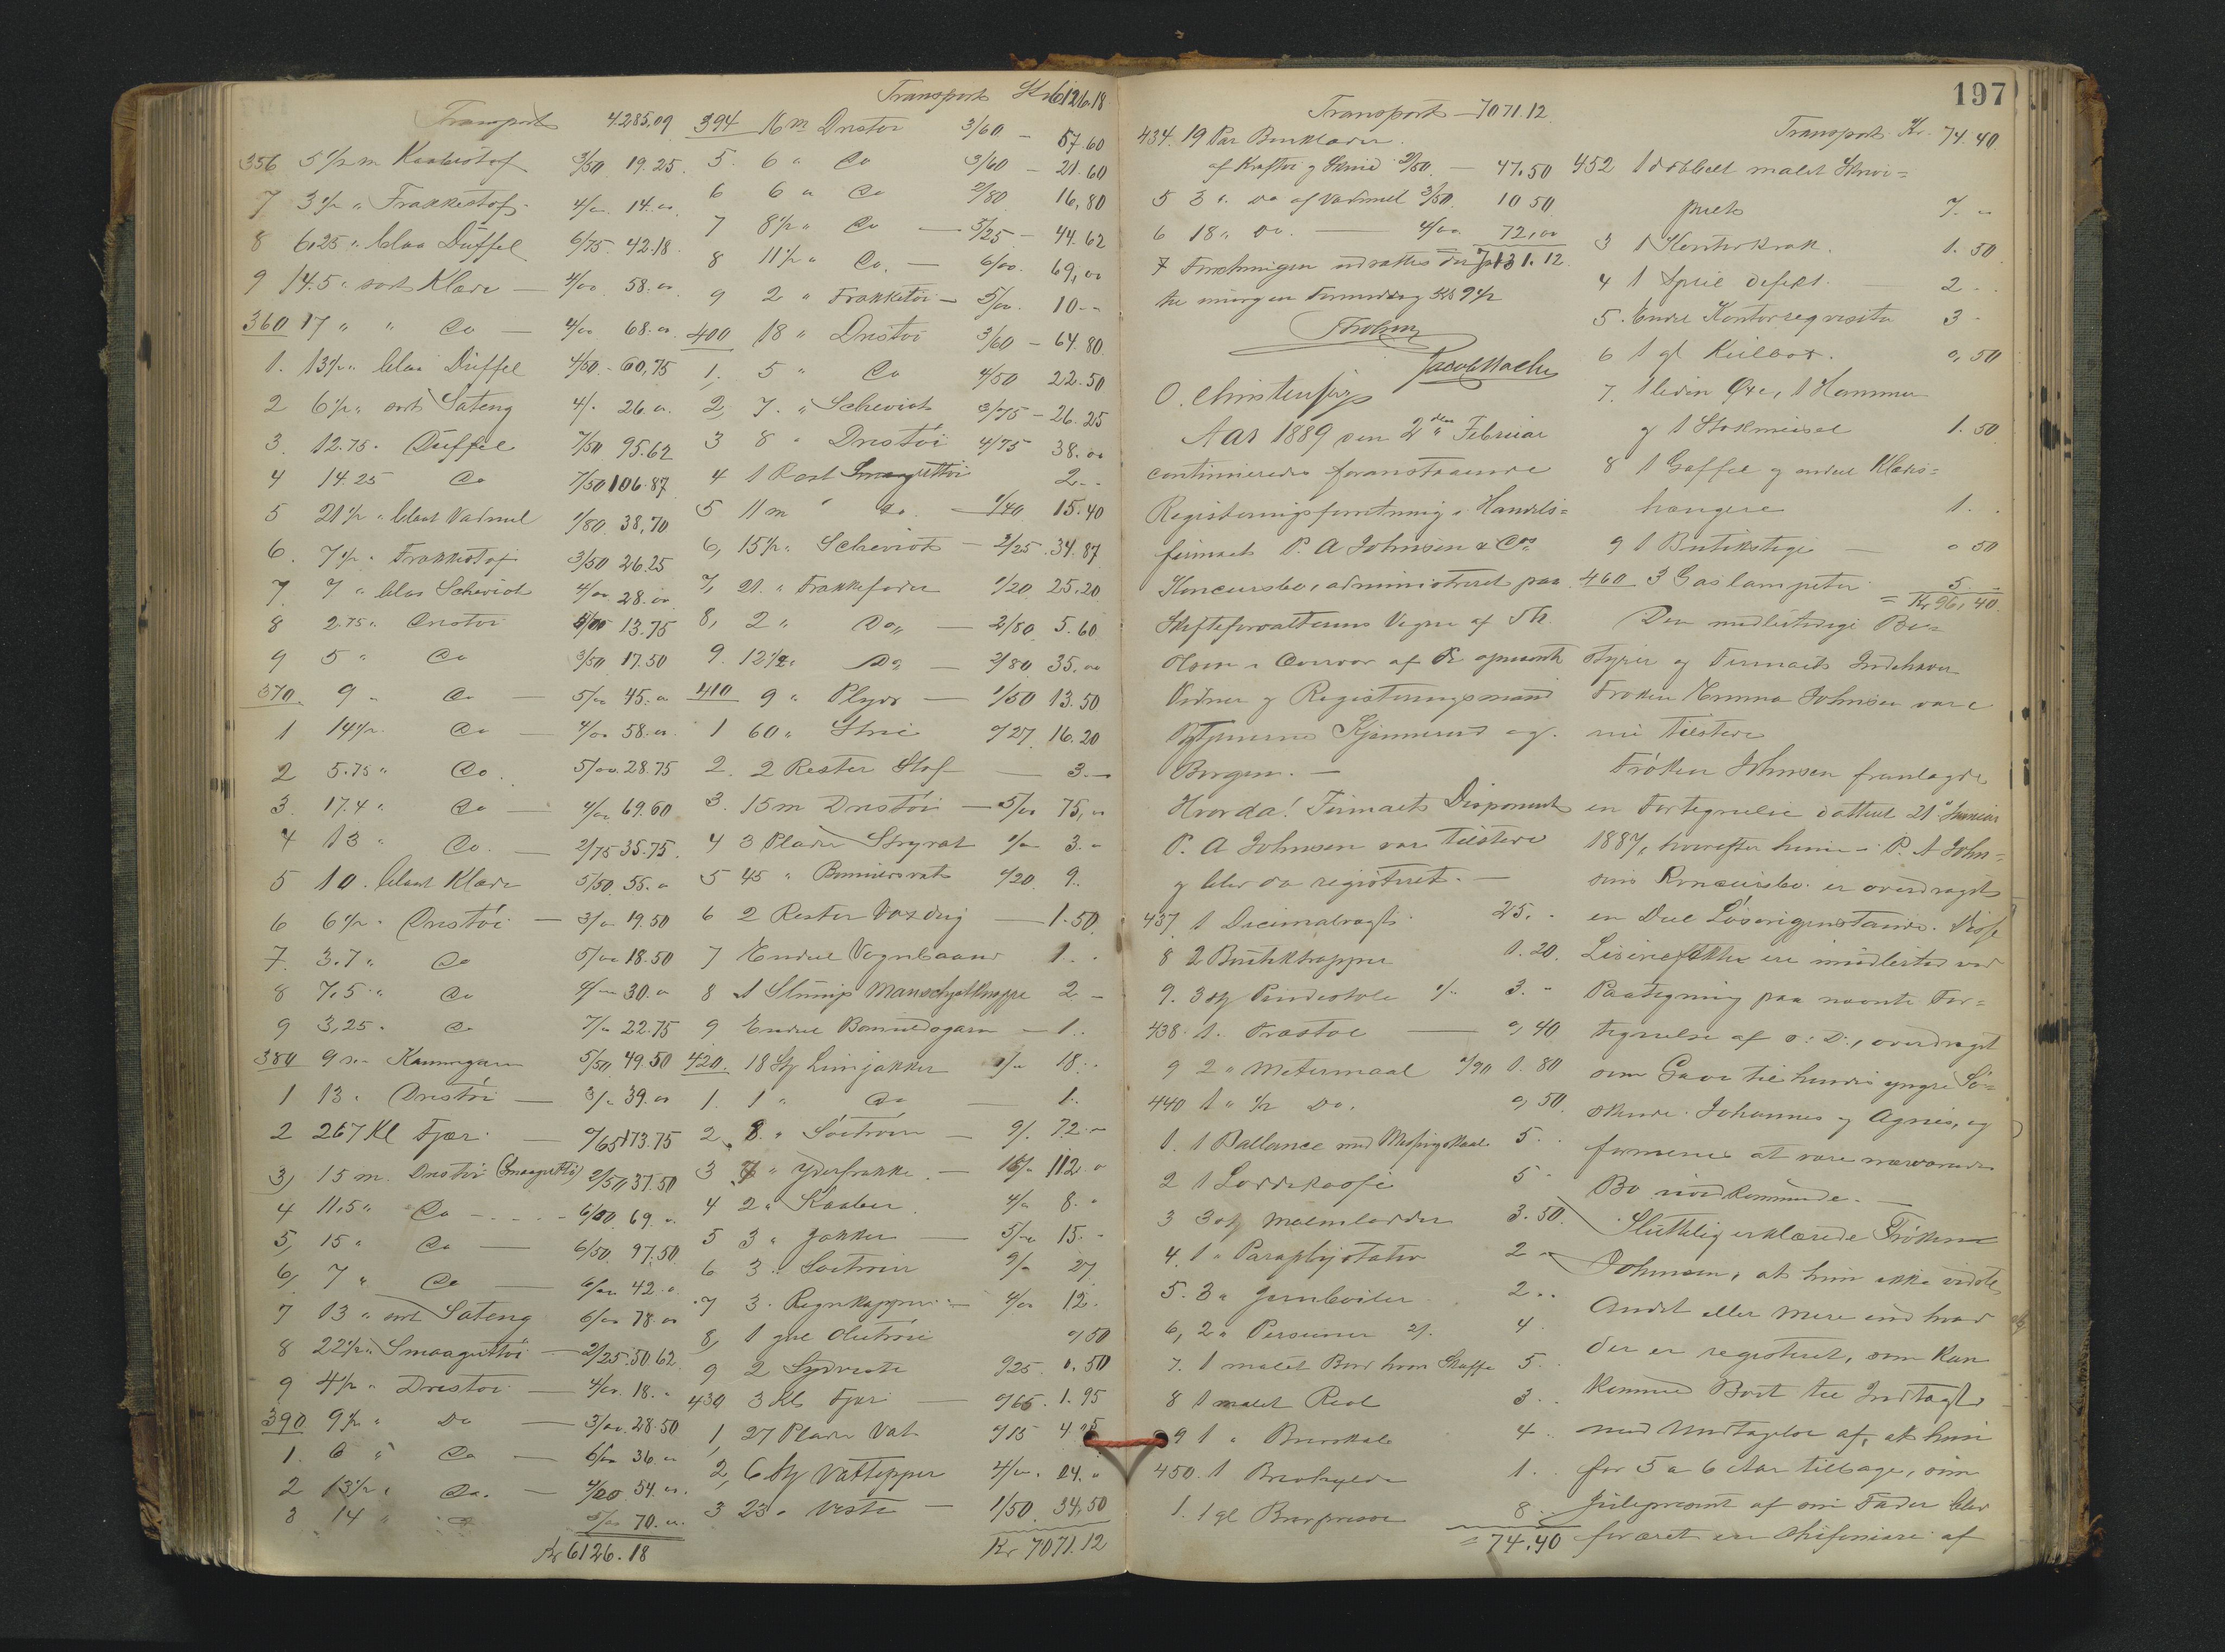 Transport 4285,09
356 5 1/2 m Kaabestof 3/50 19.25
7 3 1/2 " Frakkestof 4/00 14.00
8 6,25 " blaa Düffel 6/75 42.18
9 14.5 " sort Klæde — 4/00 58.00
360 17 " " Do — 4/00 68.00
1. 13 1/2 " blaa Düffel 4/50 - 60,75
2 6 1/2 " sort Sateng 4/. 26.00
3. 12.75 " Düffel 7/50 95.62
4 14.25 Do 7/50 106.87
5 21 1/2 " blaat Vadmel 1/80 38,70
6. 7 1/2 " Frakkestof 3/50 26.25
7. 7 " blaa Scheviot 4/00 28.00
8 2.75 " Drestöi 5/00 13.75
9 5 " Do 3/50 17.50
370. 9 " Do — 5/00 45.00
1 14 1/2 Do — 4/00 58.00
2 5.75 " Do. 5/00. 28.75
3. 17.4 " Do — 4/00 69.60
4 13 " Do. — 2/75 35.75
5 10. blaat Klæde 5/50. 55.00
6 6 1/2 " Drestöi — 3/00 19.50
7. 3.7 " Do 5/00 18.50
8 7,5 " Do 4/00 30.00
9 3,25 " Do 7/00 22.75
380 9 m Kamgarn 5/50 49.50
1 13 " Drestöi — 3/00 39.00
2 267 Kl Fjær — 0/65 173.75
3, 15 m. Drestöi (Smaaguttöi) 2/50 37.50
4 11,5 " Do - . - . - 6/00. 69.00
5, 15 " Do — 6/50. 97.50
6, 7 " Do — 6/00 42.00
7 13 " sort Sateng 6/00 78.00
8 22 1/2 " Smaaguttöi — 2/25. 50.62
9 4 1/2 " Drestöi — 4/00. 18.00
390 9 1/2 " Do — 3/00. 28.50
1. 6 " Do — 6/00 36.00
2 13 1/2 " Do. — 4/00. 54.00
3 14 " Do 5/00 70.00
Kr 6126.18
Transport Kr 6126.18
394 16 m Drestöi 3/60 — 57.60
5. 6 " Do 3/60 — 21.60
6 6 " Do 2/80 16,80
7 8 1/2 " Do — 5/25 — 44.62
8 11 1/2 " Do. — 6/00. 69,00
9 2 " Frakketöi — 5/00. 10 - -
400 18 " Drestöi 3/60 — 64.80
1, 5 " Do 4/50 22.50
2, 7. " Scheviot 3/75 — 26.25
3 8 " Drestöi 4/75 38.00
4 1 Rest Smaaguttöi 2 - -
5 11 m " Do. — 1/40 15.40
6, 15 1/2 " Scheviot — 2/25. 34.87
7, 21. " Frakkefoder 1/20 25.20
8, 2 " Do " — 2/80. 5.60
9. 12 1/2 " Do — 2/80 35.00
410 9 " Plyds — 1/50 13.50
1 60 " Strie 0/27 16.20
2. 2 Rester Stof — 3. -
3. 15 m Drestöi — 5/00 75,00
4 3 Plader Skrvat 1/00 3. -
5 45 " Bomuldsvat 0/20. 9.
6 2 Rester Voxdug — 1.50
7 Endel Vognbaand 1. .
8 1 Slump Manschetknapper 2 -
9 Endel Bomuldsgarn — 1. .
420. 18 Stk Linjakker 1/00 18. .
1. 1 " Do — 1.
2, 8 " Soetröier — 9/. 72. -
3 7 " Yderfrakke. — 16/00 112.
4 2 " Kaaber. 4/00 8. "
5 3 " Jakker — 5/00 15. -
6 3 " Soetröier 9/00 27
7 3. Regnkapper — 4/00 12.
8, 1 gul Olietröie 0,50
9 2 Sydveste 0/25. 0.50
430 3 Kl. Fjær — 0/65. 1.95
1, 27 Plader Vat 0/15 4.25
2, 6 Stk Vattepper 4/00. 24. "
3 23 " Veste — 1/50 34.50
Kr 7071.12
Transport — 7071.12
434. 19 Par Benklæder
af Kraftöi og Skind 2/50. — 47.50
5 3 " Do af Vadmel 3/50. 10 50
6 18 " Do. — 4/00. 72,00
7131.12
Forretningen udsattes derpaa
til imorgen Formiddag Kl 9 1/2
O. Christensen Jacob Mache
Aar 1889 den 2den Februar
continueredes foranstaaende
Registeringsforretning i Handels=
firmaet P. A Johnsen & Coes
Koncursbo, administreret paa
Skifteforvalterens Vegne af Th.
Olsen i Overvær af de opnævnte
Vidner og Registeringsmænd
Kjennerud og
Borgen. —
Hvorda! Firmaets Disponent
P. A Johnsen var tilstede
og blev da registreret. —
437. 1 Decimalvægt 25. -
8 2 Butiktrapper 1.20.
9. 3 Stk Pindestole 1/. 3. -
438. 1. Træstol — 0,40
9 2 " Metermaal 0/90 1.80
440 1 " 1/2 Do. 0,50
1. 1 Ballance med Messingskaale 5. .
2 1 Loddekasse 5 -
3 3 Stk Malmlodder 3.50
4. 1 " Paraplystativ 2 -
5. 3 " Jernbøiler 2. .
6, 2 " Persienner 2/. 4.
7. 1 malet Bord hvori Skuffe 5. .
8 1 malet Reol 3. .
9 1 " Brevskab 4 .
450. 1 Brevhylde 1. .
1. 1 gl Brevpresse 8. .
= 74.40
197
Transport Kr. 74.40
452 1 dobbelt malet Skrive=
pult 7. -
3 1 Kontorkrak. 1.50
4 1 Speil defekt. — 2 - .
5. Endel Kontorreqvisita 3 -
6 1 gl Kulbox. 0,50
7. 1 liden Øxe, 1 Hammer
og 1 Stokmeisel 1.50
8 1 Gaffel og endel Klæds=
hængere 1. .
9 1 Butikstige — 0 50
460 3 Gaslampetter 5 -
= Kr 96,40
Den midlertidige Be=
styrer og Firmaets Indehaver
Frøken Emma Johnsen vare
nu tilstede
Frøken Johnsen fremlagde
en Fortegnelse datteret 21 Januar
1887, hvorefter hende i P. A John=
sens Koncursbo er overdraget
en Deel Løsøregjenstande. Disse
Løsøreeffekter ere imidlertid ved
Paategning paa nævnte For=
tegnelse af s: D:, overdraget
som Gave til hendes yngre Sø=
skende Johannes og Agnes, og
formenes at være nærværende
Bo uvedkommende. —
Sluttelig erklærede Frøken
Johnsen, at hun ikke vidste
Andet eller mere end hvad
der er registreret, som kan
komme Boet til Indtægt
med Undtagelse af, at hun
for 5 a 6 Aar tilbage, som
Julepresent af sin Fader blev
foræret en Chifoniere af